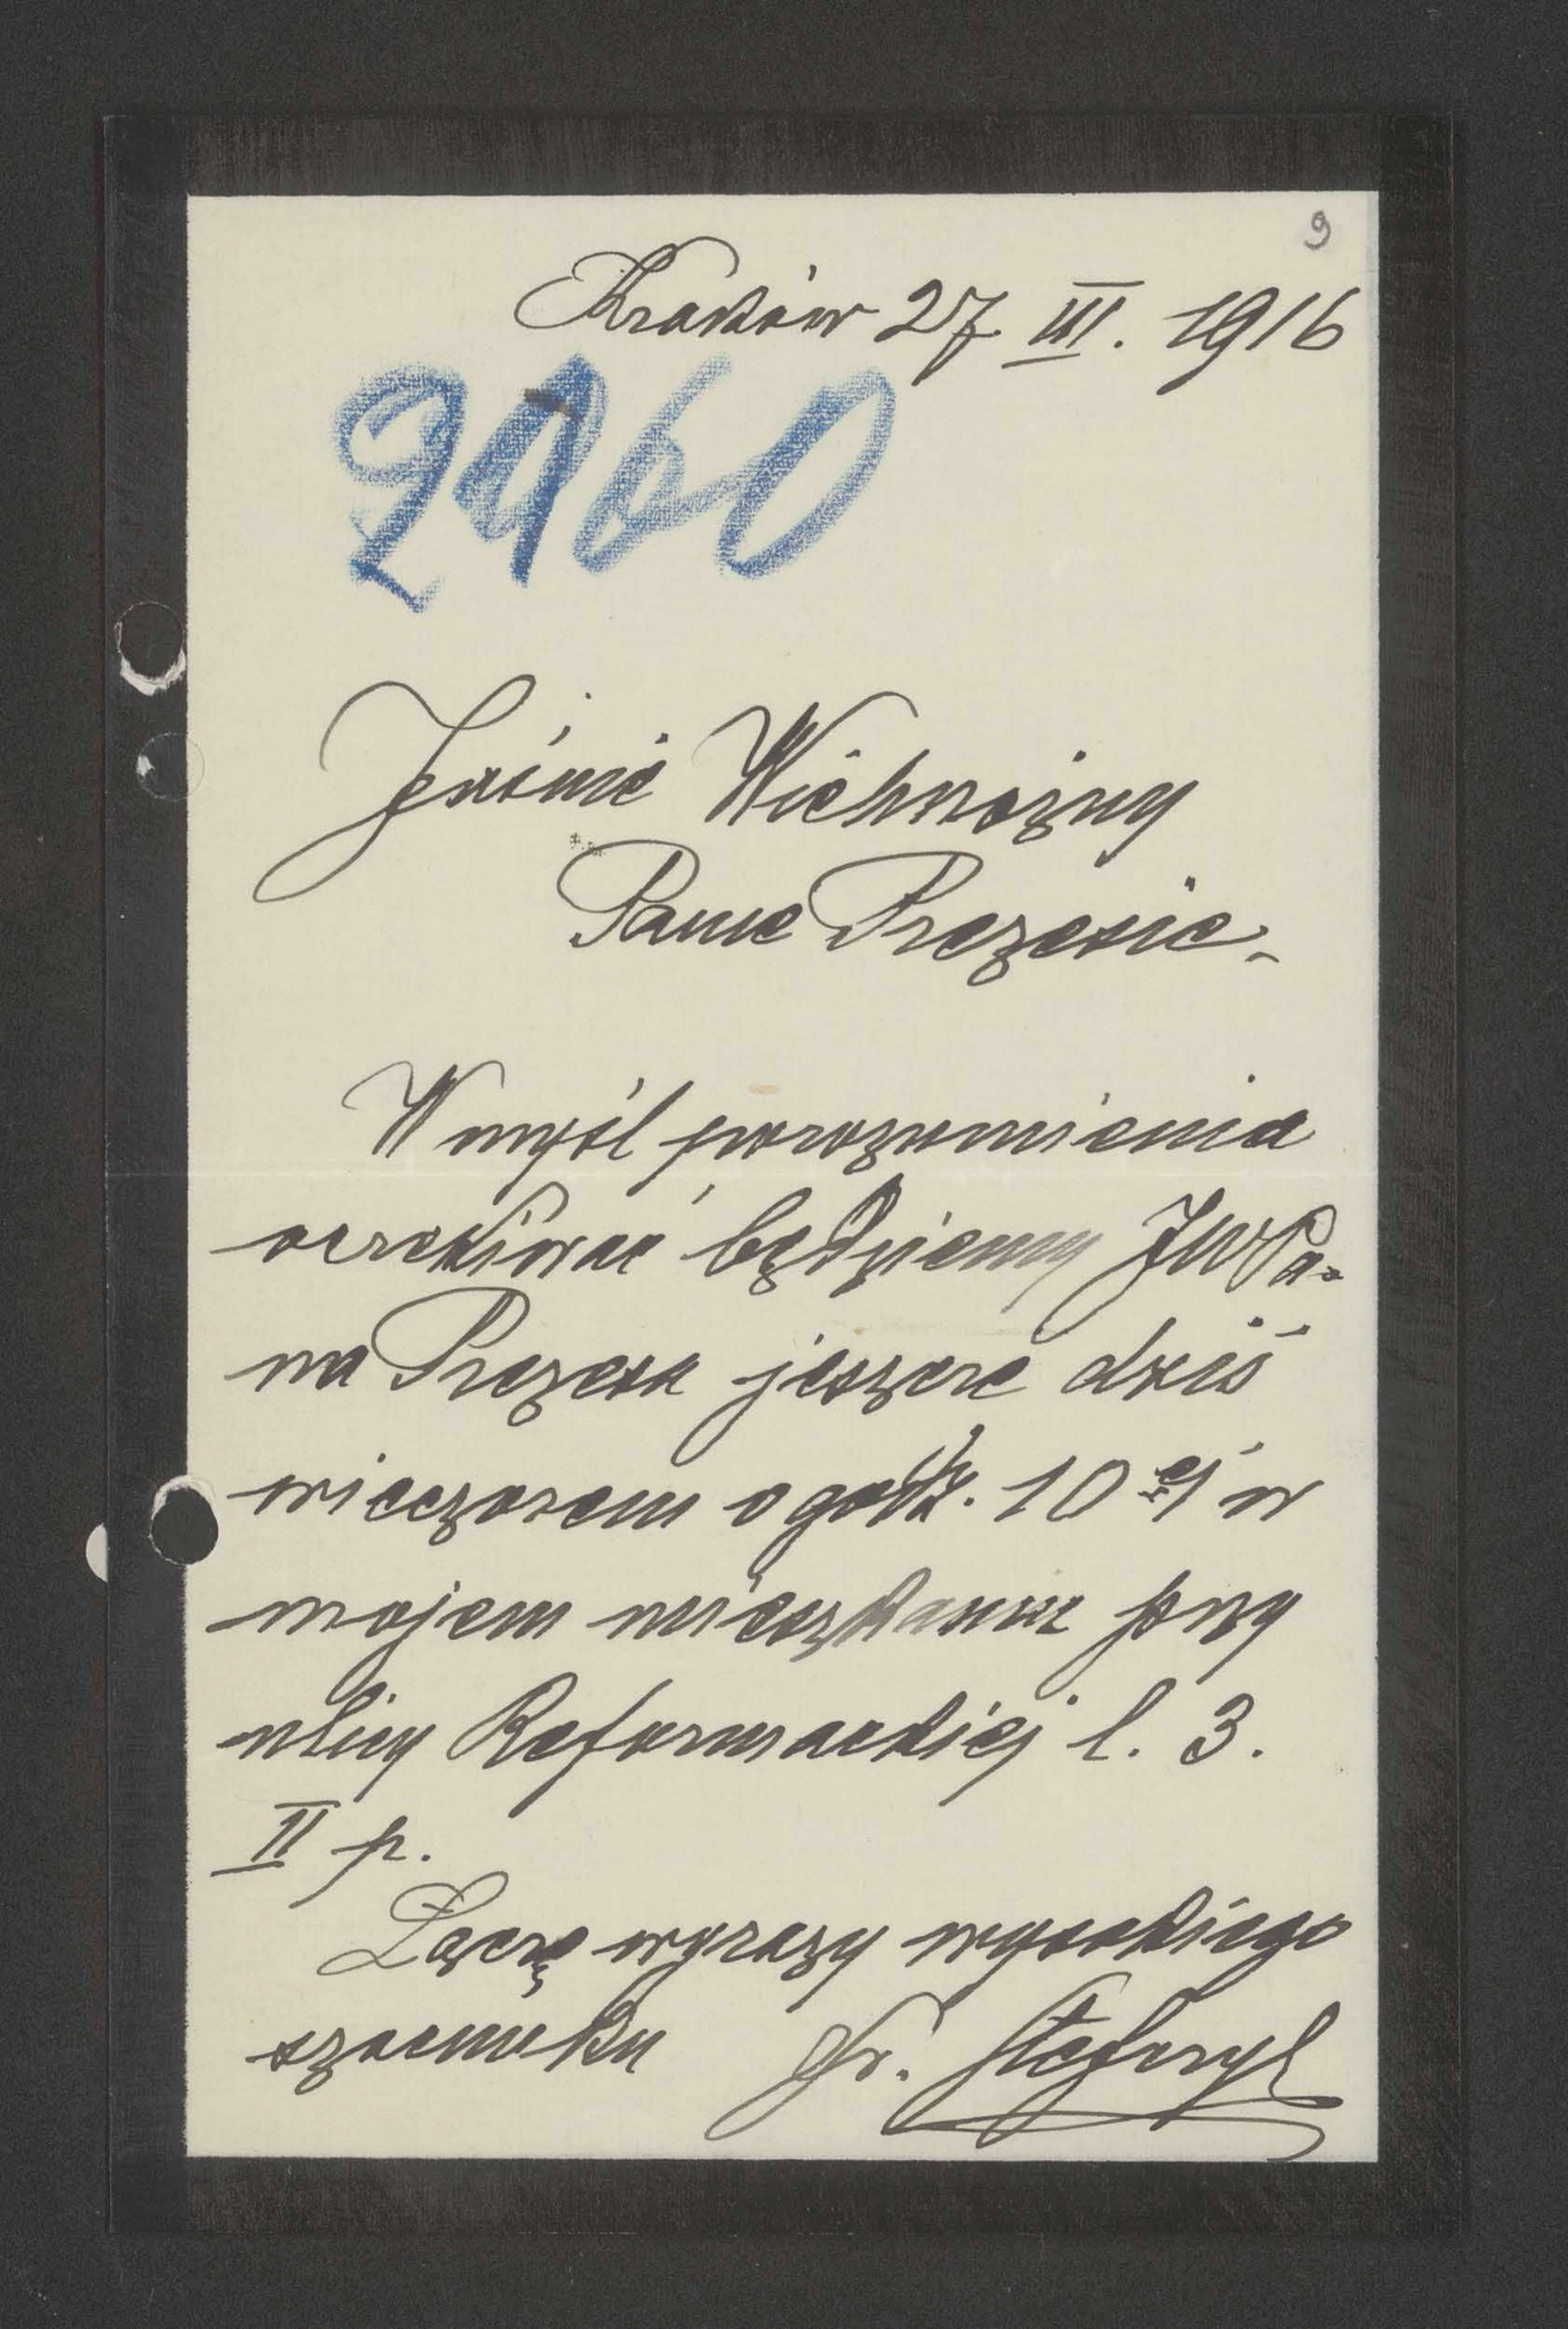 9
Kraków 27 III. 1916
2960
Jaśnie Wielmożny
Panie Prezesie.
W myśl porozumienia
oczekiwać będziemy JWPa-
na Prezesa jeszcze dziś
wieczorem o godz. 10 ej w
mojem mieszkaniu przy
ulicy Reformackiej l. 3.
II p.
Łączę wyrazy wysokiego
szacunku Fr. Stefczyk